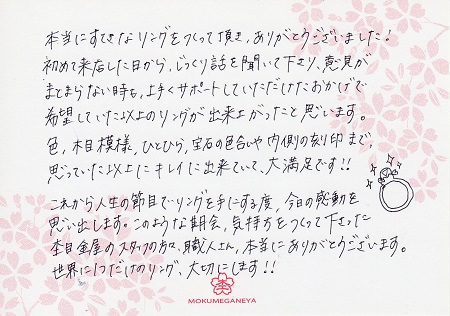 本当にすてきなリングをつくって頂き、ありがとうございました!
初めて来店した日から、じっくり話を聞いて下さり、意見が
まとまらない時も、上手くサポートしていただけたおかげで
希望していた以上のリングが出来上がったと思います。
色、木目模様、ひとひら、宝石の色合いや内側の刻印まで、
思っていた以上にキレイに出来ていて、大満足です!!
これから人生の節目でリングを手にする度、今日の感動を
思い出します。このような機会、気持ちをつくって下さった
杢目金屋のスタッフの方々、職人さん、本当にありがとうございます。
世界に1つだけのリング、大切にします!!
MOKUMEGANEYA